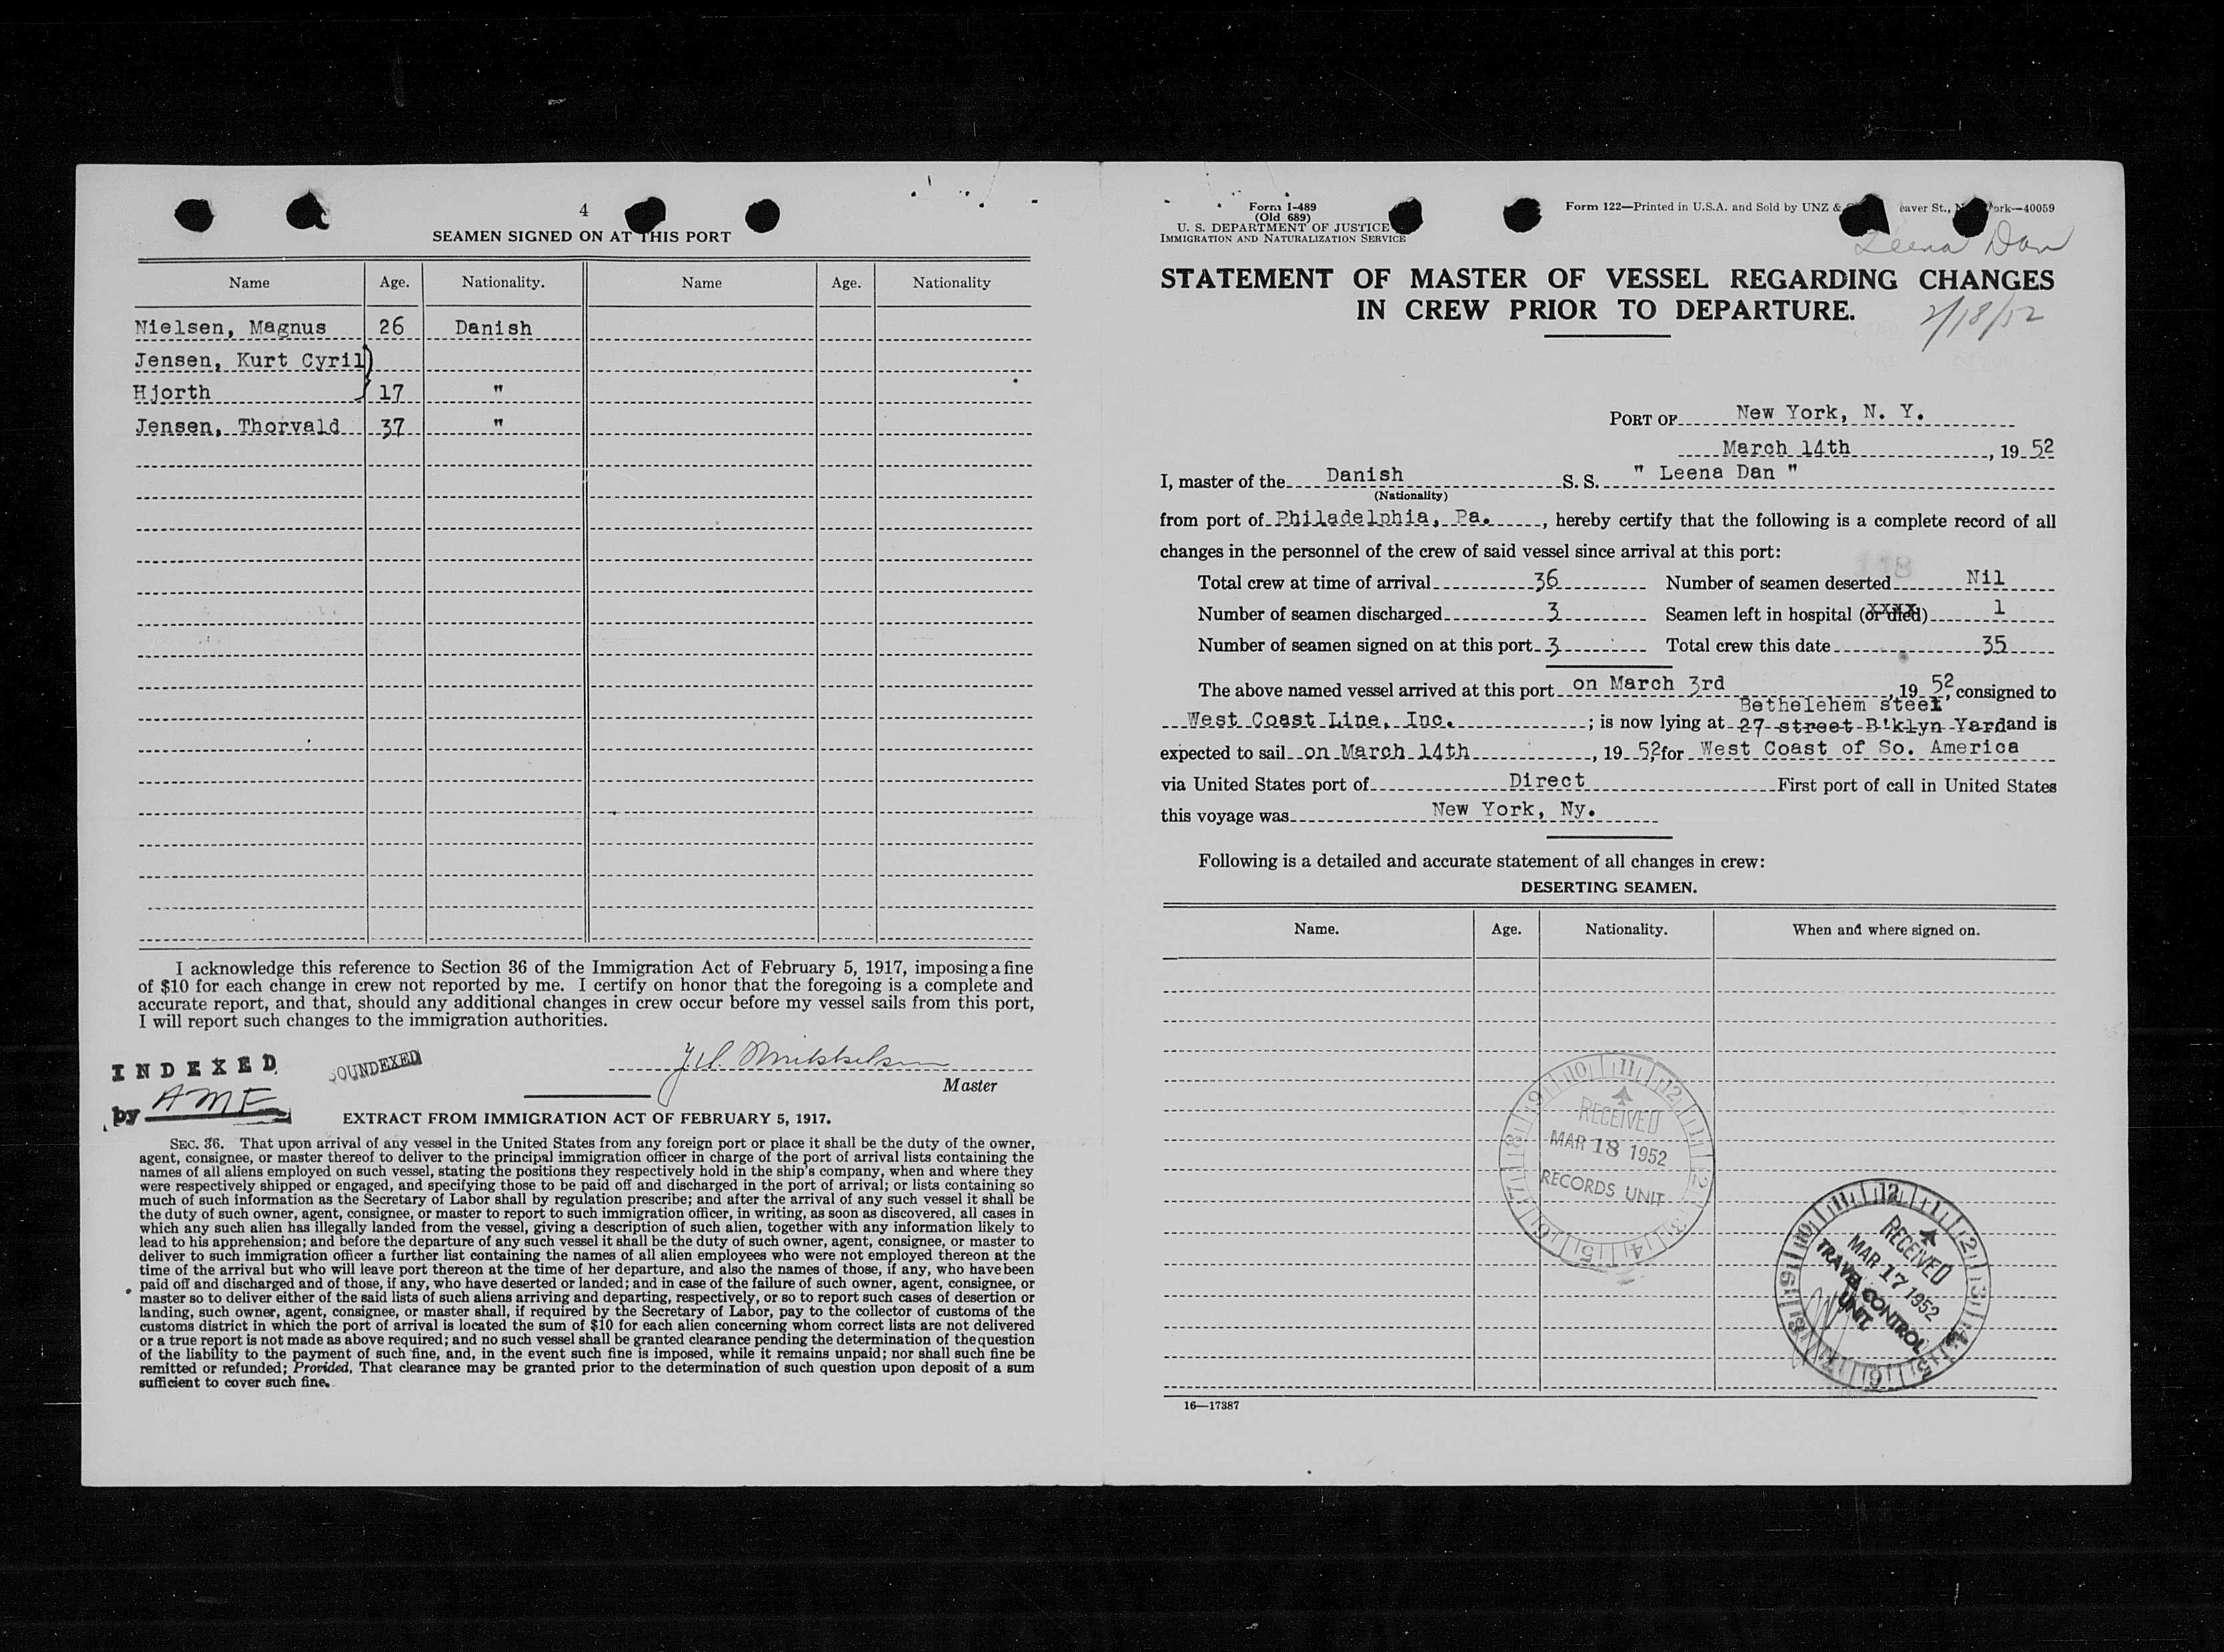 4
SEAMEN SIGNED ON AT THIS PORT
Name Age. Nationality. Name Age. Nationality
Nielsen, Magnus 26 Danish
Jensen, Kurt Cyril)
Hjorth 17 "
Jensen, Thorvald 37 "
I acknowledge this reference to Section 36 of the Immigration Act of February 5, 1917, imposing a fine
of $10 for each change in crew not reported by me. I certify on honor that the foregoing is a complete and
accurate report, and that, should any additional changes in crew occur before my vessel sails from this port,
I will report such changes to the immigration authorities.
INDEXED
by AME
SOUNDEXED
Master
EXTRACT FROM IMMIGRATION ACT OF FEBRUARY 5, 1917.
SEC. 36. That upon arrival of any vessel in the United States from any foreign port or place it shall be the duty of the owner,
agent, consignee, or master thereof to deliver to the principal immigration officer in charge of the port of arrival lists containing the
names of all aliens employed on such vessel, stating the positions they respectively hold in the ship's company, when and where they
were respectively shipped or engaged, and specifying those to be paid off and discharged in the port of arrival; or lists containing so
much of such information as the Secretary of Labor shall by regulation prescribe; and after the arrival of any such vessel it shall be
the duty of such owner, agent, consignee, or master to report to such immigration officer, in writing, as soon as discovered, all cases in
which any such alien has illegally landed from the vessel, giving a description of such alien, together with any information likely to
lead to his apprehension; and before the departure of any such vessel it shall be the duty of such owner, agent, consignee, or master to
deliver to such immigration officer a further list containing the names of all alien employees who were not employed thereon at the
time of the arrival but who will leave port thereon at the time of her departure, and also the names of those, if any, who have been
paid off and discharged and of those, if any, who have deserted or landed; and in case of the failure of such owner, agent, consignee, or
master so to deliver either of the said lists of such aliens arriving and departing, respectively, or so to report such cases of desertion or
landing, such owner, agent, consignee, or master shall, if required by the Secretary of Labor, pay to the collector of customs of the
customs district in which the port of arrival is located the sum of $10 for each alien concerning whom correct lists are not delivered
or a true report is not made as above required; and no such vessel shall be granted clearance pending the determination of the question
of the liability to the payment of such fine, and, in the event such fine is imposed, while it remains unpaid; nor shall such fine be
remitted or refunded; Provided, That clearance may be granted prior to the determination of such question upon deposit of a sum
sufficient to cover such fine.
Form I-489
(Old 689)
U. S. DEPARTMENT OF JUSTICE
IMMIGRATION AND NATURALIZATION SERVICE
Form 122—Printed in U.S.A. and Sold by UNZ & eaver St., ork—40059
Leena Dan
STATEMENT OF MASTER OF VESSEL REGARDING CHANGES
IN CREW PRIOR TO DEPARTURE.
2/18/52
PORT OF New York, N. Y.
March 14th, 19 52
I, master of the Danish S. S. " Leena Dan "
(Nationality)
from port of Philadelphia, Pa., hereby certify that the following is a complete record of all
changes in the personnel of the crew of said vessel since arrival at this port:
118
Total crew at time of arrival 36 Number of seamen deserted Nil
Number of seamen discharged 3 Seamen left in hospital (or died) 1
Number of seamen signed on at this port 3 Total crew this date 35
The above named vessel arrived at this port on March 3rd, 19 52, consigned to
Bethelehem steel
West Coast Line, Inc.; is now lying at 27 street B'klyn Yard and is
expected to sail on March 14th, 19 52, for West Coast of So. America
via United States port of Direct First port of call in United States
this voyage was New York, Ny.
Following is a detailed and accurate statement of all changes in crew:
DESERTING SEAMEN.
Name. Age. Nationality. When and where signed on.
RECEIVED
MAR 18 1952
RECORDS UNIT
RECEIVED
MAR 17 1952
TRAVEL CONTROL
UNIT
16—17387